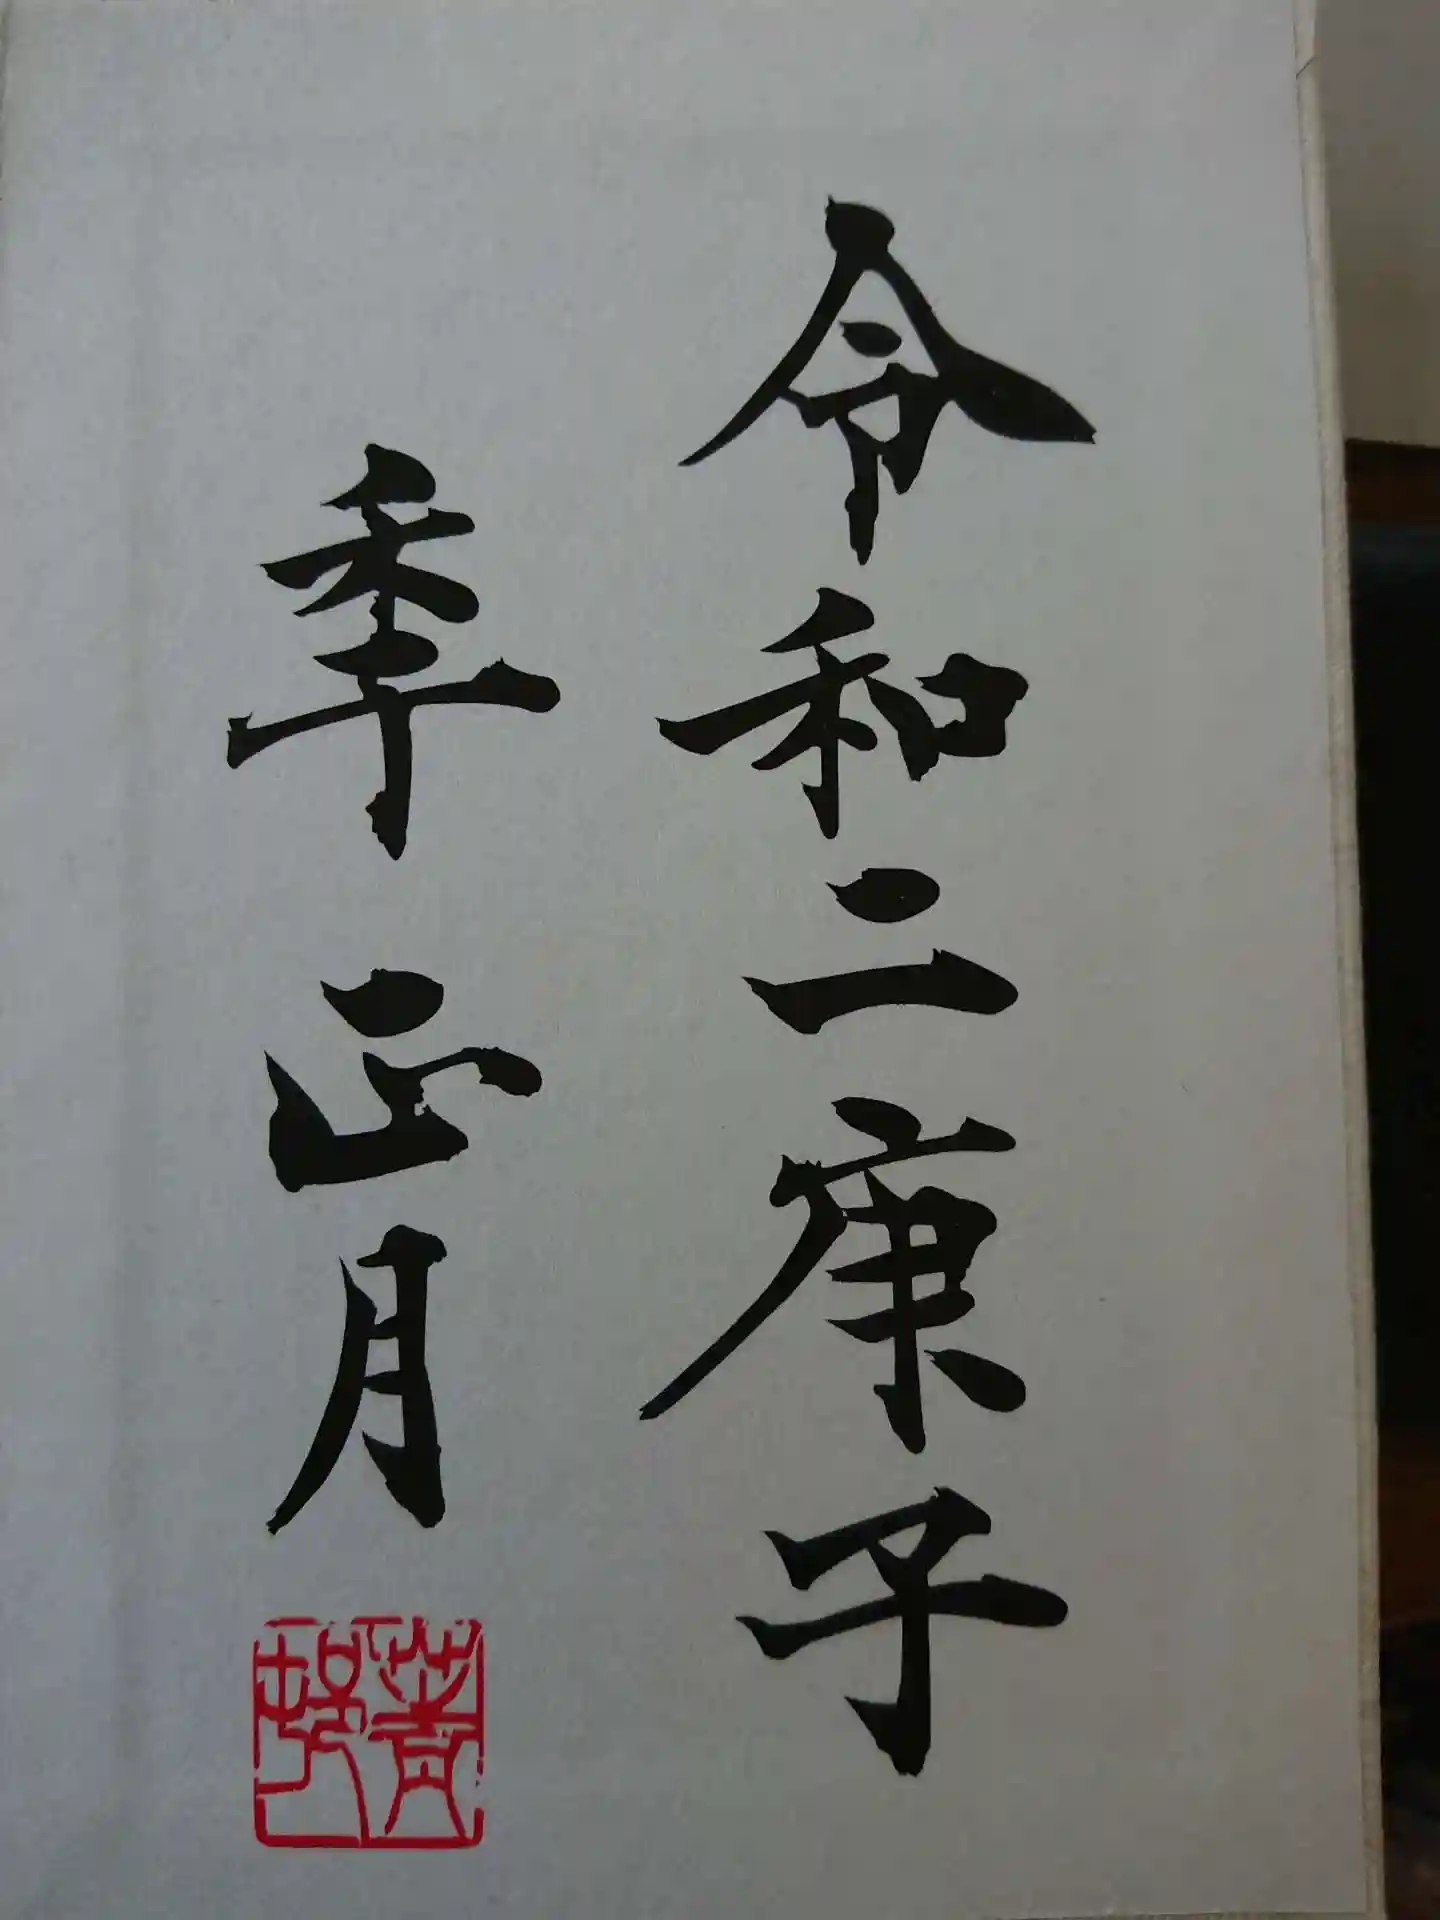 令和二庚子
秊正月